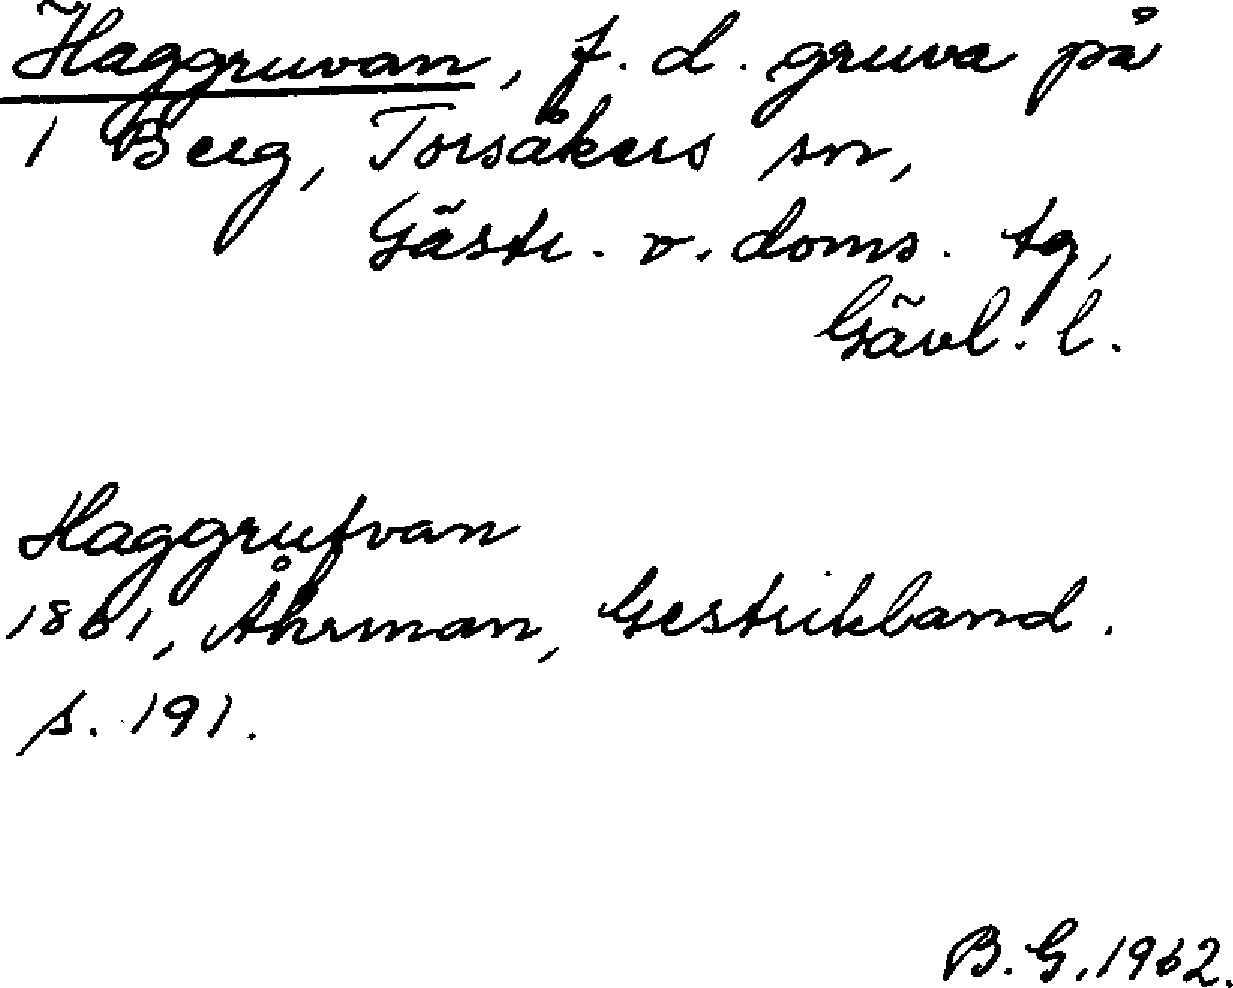 Haggruvan, f. d. gruva på
1 Berg, Torsåkers sn,
Gästr. v. doms. tg,
Gävl. l.
Haggrufvan
1861, Åhrman, Gestrikland.
s. 191.
B. G. 1962.